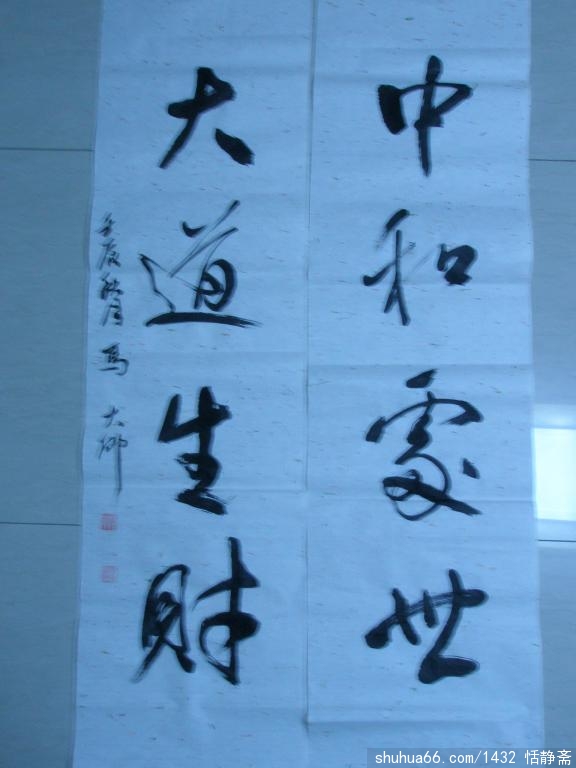 中和處世
大道生财
壬辰秋月 馬大卿
shuhua66.com/1432 恬静斋